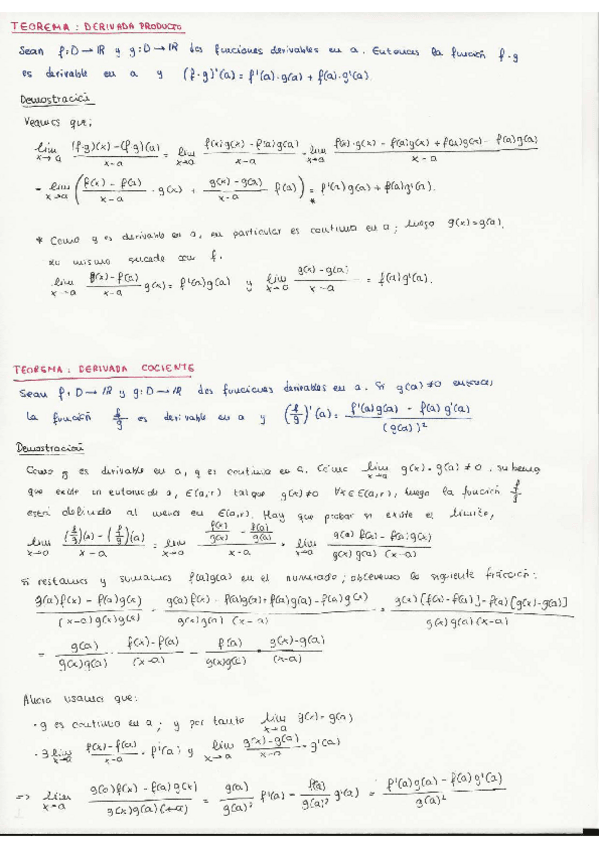 TEOREMA: DERIVADA PRODUCTO
Sean f: D → IR y g: D → IR dos funciones derivables en a. Entonces la función f·g
es derivable en a y (f·g)'(a) = f'(a)·g(a) + f(a)·g'(a).
Demostración
Veamos que:
lim x→a (f·g)(x)-(f·g)(a) / x-a = lim x→a f(x)g(x) - f(a)g(a) / x-a = lim x→a f(x)·g(x) - f(a)g(x) + f(a)g(x) - f(a)g(a) / x-a
= lim x→a ( f(x) - f(a) / x-a · g(x) + g(x) - g(a) / x-a f(a) ) =* f'(a)g(a) + f(a)g'(a).
* Como g es derivable en a, en particular es continua en a; luego g(x)=g(a).
Lo mismo sucede con f.
lim x→a f(x) - f(a) / x-a g(x) = f'(a)g(a) y lim x→a g(x) - g(a) / x-a = f(a)g'(a).
TEOREMA: DERIVADA COCIENTE
Sean f: D → IR y g: D → IR dos funciones derivables en a. Si g(a) ≠0 entonces
la función f/g es derivable en a y (f/g)'(a) = f'(a)g(a) - f(a)g'(a) / (g(a))²
Demostración
Como g es derivable en a, g es continua en a. Como lim x→a g(x) = g(a) ≠0, sabemos
que existe un entorno de a, E(a,r) tal que g(x)≠0 ∀x∈E(a,r), luego la función f/g
está definida al menos en E(a,r). Hay que probar si existe el límite,
lim x→a (f/g)(x) - (f/g)(a) / x-a = lim x→a f(x)/g(x) - f(a)/g(a) / x-a = lim x→a g(a) f(x) - f(a)g(x) / g(x) g(a) (x-a)
si restamos y sumamos f(a)g(a) en el numerador; obtenemos la siguiente fracción:
g(a)f(x) - f(a)g(x) / (x-a)g(x)g(a) = g(a)f(x) - f(a)g(a) + f(a)g(a) - f(a)g(x) / g(x)g(a) (x-a) = g(a) [f(x)-f(a)] - f(a) [g(x)-g(a)] / g(x)g(a)(x-a)
= g(a) / g(x)g(a) · f(x)-f(a) / (x-a) - f(a) / g(x)g(a) · g(x)-g(a) / (x-a)
Ahora usamos que:
· g es continua en a; y por tanto lim x→a g(x) = g(a)
· ∃ lim x→a f(x)-f(a) / x-a = f'(a) y lim x→a g(x)-g(a) / x-a = g'(a)
=> lim x→a g(a)f(x) - f(a)g(x) / g(x)g(a)(x-a) = g(a) / g(a)² f'(a) - f(a) / g(a)² g'(a) = f'(a)g(a) - f(a)g'(a) / g(a)²